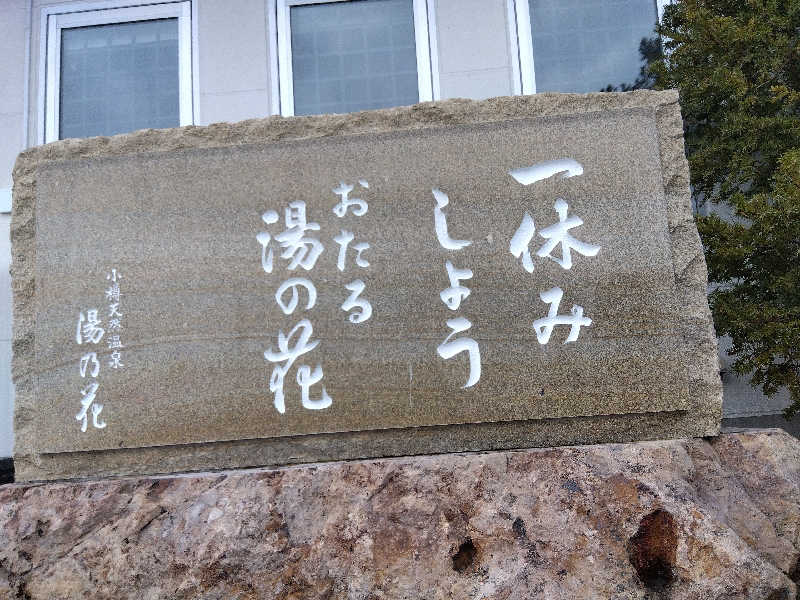 一休み
しょう
おたる
湯の花
小樽天然温泉
湯乃花